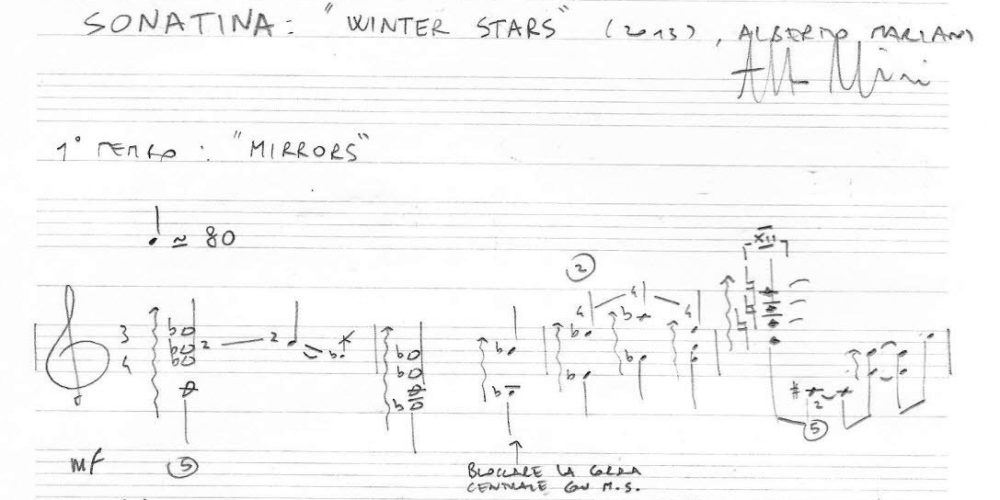 SONATINA: "WINTER STARS" (2013), ALBERTO MARIANI
1° TEMPO: "MIRRORS"
≃ 80
XII
2
4 4 4
3
4
2 2
2
5
mf 5
BLOCCARE LA CORDA
CENTRALE CON M.S.